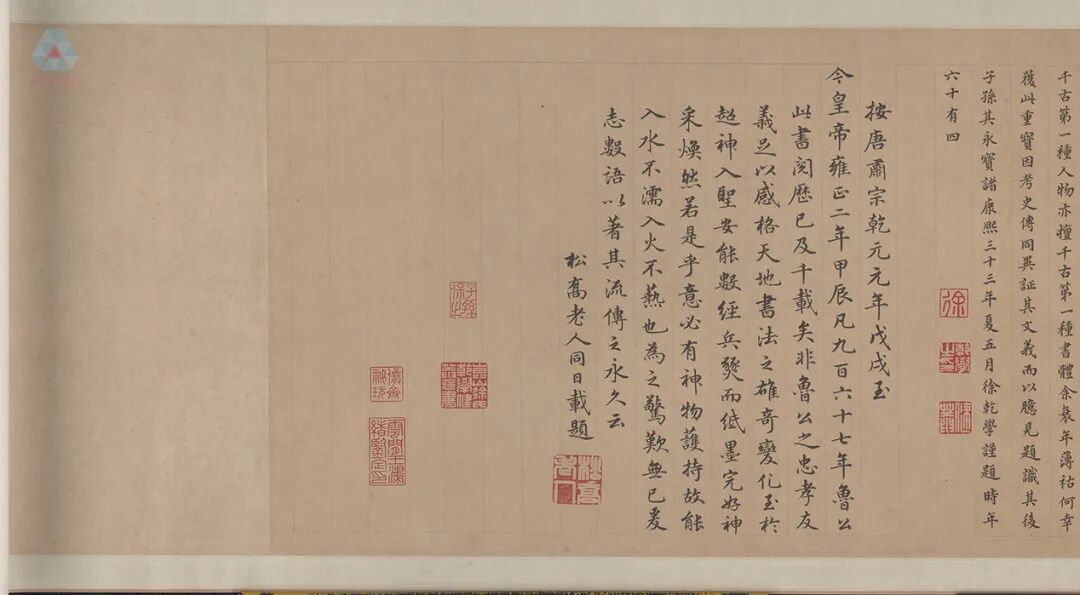 千古第一種人物亦擅千古第一種書體余衰年薄祜何幸
獲此重寶因考史傳同異証其文義而以臆見題識其後
子孫其永寶諸康熙三十三年夏五月徐乾學謹題時年
六十有四
徐
乾學之印
健菴
按唐肅宗乾元元年戊戌至
今皇帝雍正二年甲辰凡九百六十七年魯公
此書閱歷已及千載矣非魯公之忠孝友
義足以感格天地書法之雄奇變化至於
超神入聖安能數經兵燹而紙墨完好神
采煥然若是乎意必有神物護持故能
入水不濡入火不爇也為之驚歎無已爰
志數語以著其流傳之永久云
松喬老人同日載題